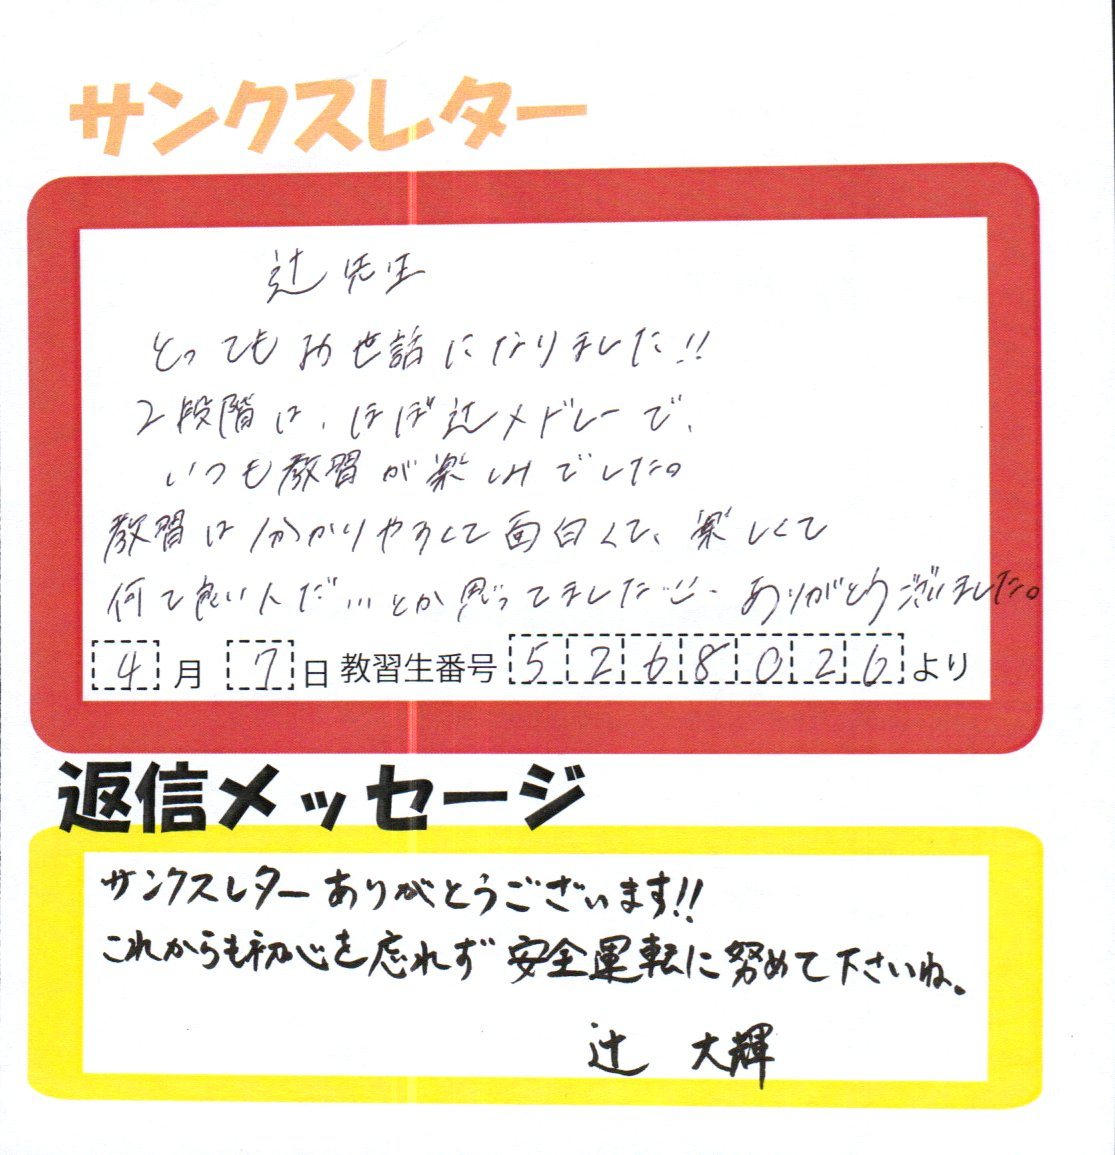 サンクスレター
辻先生
とってもお世話になりました!!
2段階は、ほぼ辻メドレーで、
いつも教習が楽しみでした。
教習は分かりやすくて面白くて、楽しくて
何て良い人だ…とか思ってました ありがとうございました。
4月7日 教習生番号 5268026 より
返信メッセージ
サンクスレターありがとうございます!!
これからも初心を忘れず安全運転に努めて下さいね。
辻 大輝